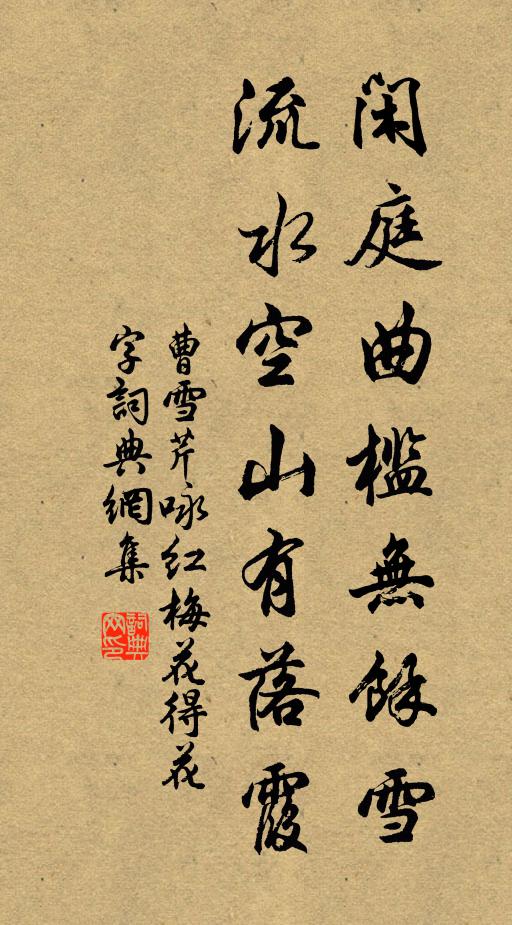 閑庭曲檻無餘雪
流水空山有落霞
曹雪芹咏红梅花得花
字詞典網集
詞典網印